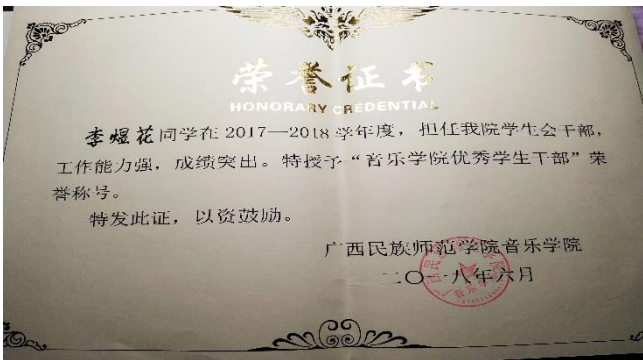 荣誉证书
HONORARY CREDENTIAL
李煜花同学在 2017—2018 学年度，担任我院学生会干部，
工作能力强，成绩突出。特授予“音乐学院优秀学生干部”荣
誉称号。
特发此证，以资鼓励。
广西民族师范学院音乐学院
二〇一八年六月